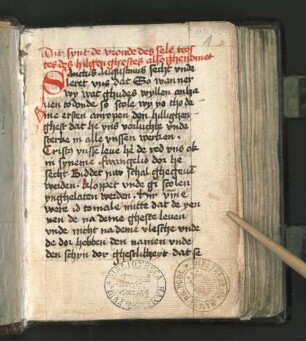 Dit synt de vronde des sele tros
tes des hilgen ghestes also ghenomet
Sanctus augustinus secht vnde
leret vns dat So wan ner
wy wat ghudes wyllen anha
uen to donde so scole wy yo tho de
me ersten anropen den hillighen
ghest dat he vns vorluchte vnde
sterke in alle vnssen werken.
Cristus vnse leue here de red vns ok
in syneme Ewangelio dor he
secht Biddet yuw schal ghegeue
werden. kloppet vnde gi scolen
ynghelaten werden. Dar vmme
were id tomale nutte dat de yen
nen de na deme gheste leuen
vnde nicht na deme vlessche vnde
de dor hebben den namen vnde
den schyn der ghestlicheyt dat se